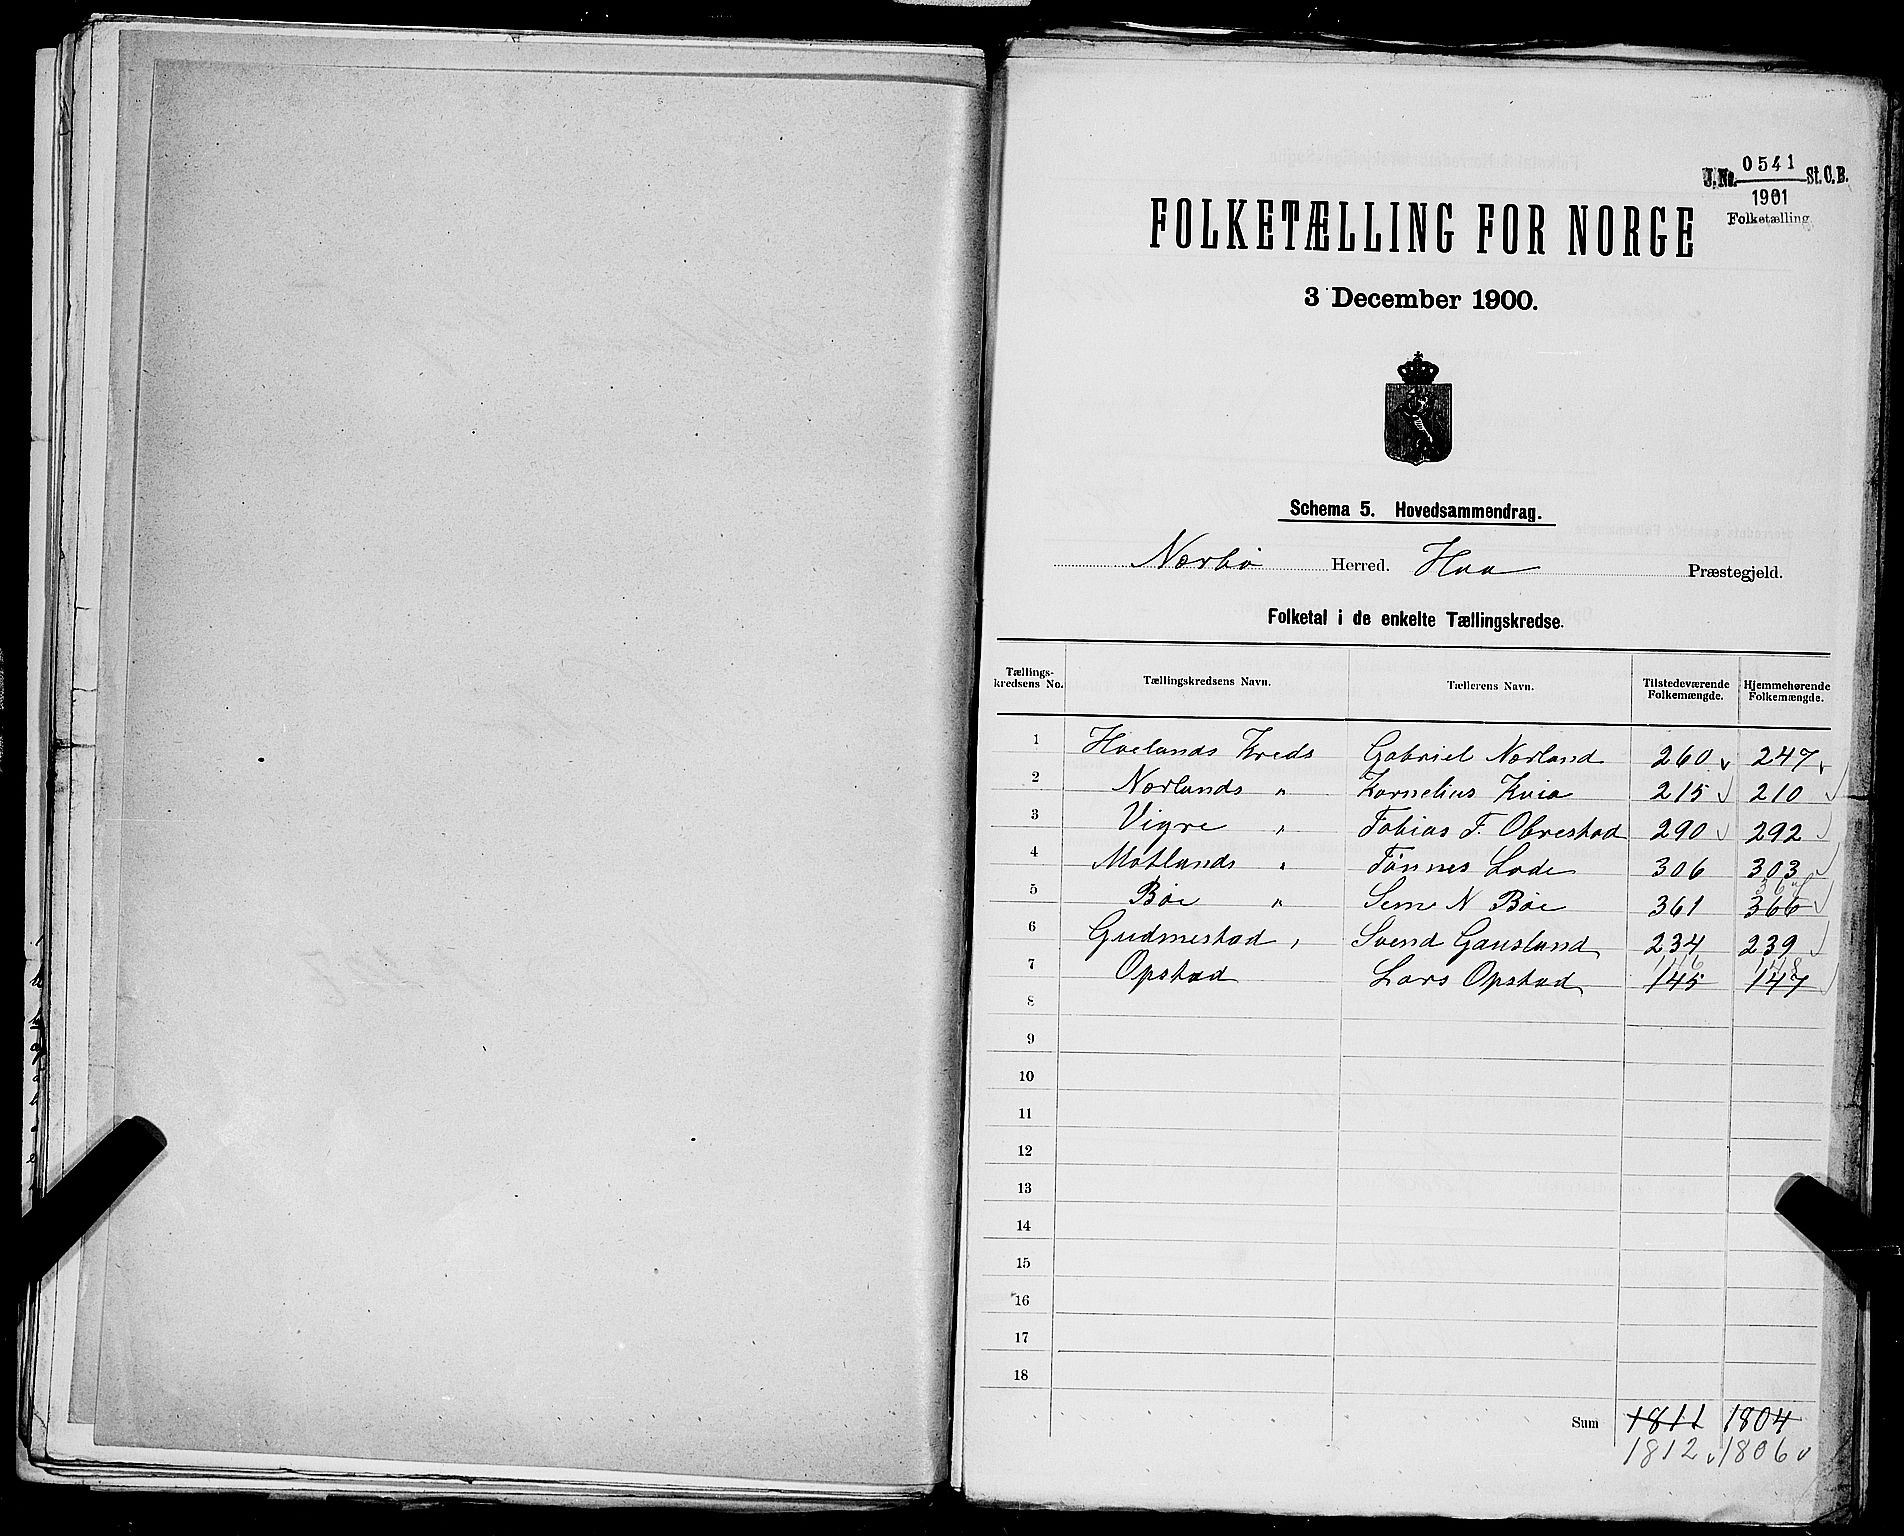 J.No. 0541 St.C.B.
1901
Folketælling
FOLKETÆLLING FOR NORGE
3 December 1900.
Schema 5. Hovedsammendrag.
Nærbø Herred. Haa Præstegjeld.
Folketal i de enkelte Tællingskredse.
Tællings-kredsens No. Tællingskredsens Navn. Tællerens Navn. Tilstedeværende Folkemængde. Hjemmehørende Folkemængde.
1 Hoelands Kreds Gabriel Nærland 260 247
2 Nærlands " Kornelius Kvia 215 210
3 Vigre " Tobias T. Obrestad 290 292
4 Motlands " Tønnes Lode 306 303
367
5 Bøe " N Bøe 361 366
6 Gudmestad " Svend Gausland 234 239
146 148
7 Opstad Lars Opstad 145 147
8
9
10
11
12
13
14
15
16
17
18
Sum 1811 1804
1812 1806